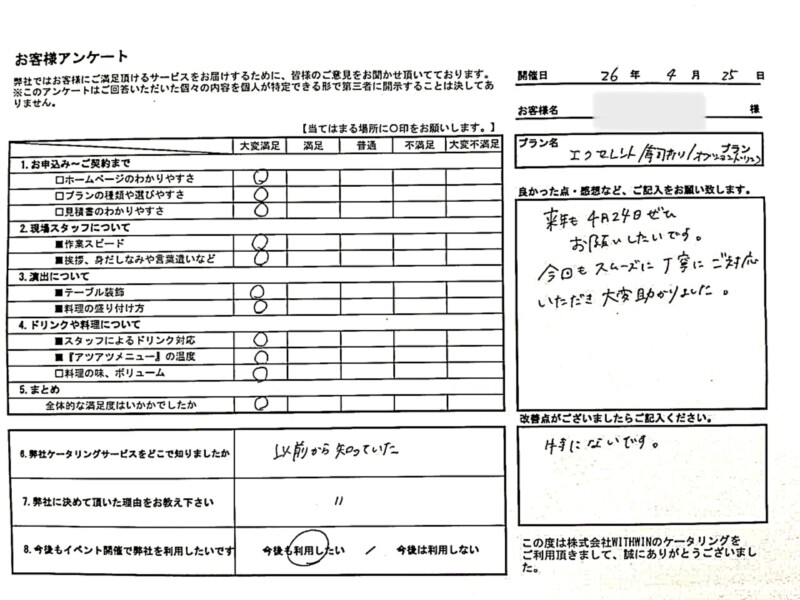 お客様アンケート
弊社ではお客様にご満足頂けるサービスをお届けするために、皆様のご意見をお聞かせ頂いてております。
※このアンケートはご回答いただいた個々の内容を個人が特定できる形で第三者に開示することは決してあ
りません。
【当てはまる場所に〇印をお願いします。】
大変満足 満足 普通 不満足 大変不満足
1.お申込み～ご契約まで
□ホームページのわかりやすさ 〇
□プランの種類や選びやすさ 〇
□見積書のわかりやすさ 〇
2.現場スタッフについて
■作業スピード 〇
■挨拶、身だしなみや言葉遣いなど 〇
3.演出について
■テーブル装飾 〇
■料理の盛り付け方 〇
4.ドリンクや料理について
■スタッフによるドリンク対応 〇
■『アツアツメニュー』の温度 〇
□料理の味、ボリューム 〇
5.まとめ
全体的な満足度はいかかでしたか 〇
6.弊社ケータリングサービスをどこで知りましたか 以前から知っていた
7.弊社に決めて頂いた理由をお教え下さい 〃
8.今後もイベント開催で弊社を利用したいです 今後も利用したい / 今後は利用しない
開催日 26 年 4 月 25 日
お客様名 様
プラン名 エクセレント/寿司有り/ プラン
良かった点・感想など、ご記入をお願い致します。
来年も4月24日ぜひ
お願いしたいです。
今回もスムーズに丁寧にご対応
いただき大変助かりました。
改善点がございましたらご記入ください。
特にないです。
この度は株式会社WITHWINのケータリングを
ご利用頂きまして、誠にありがとうございまし
た。